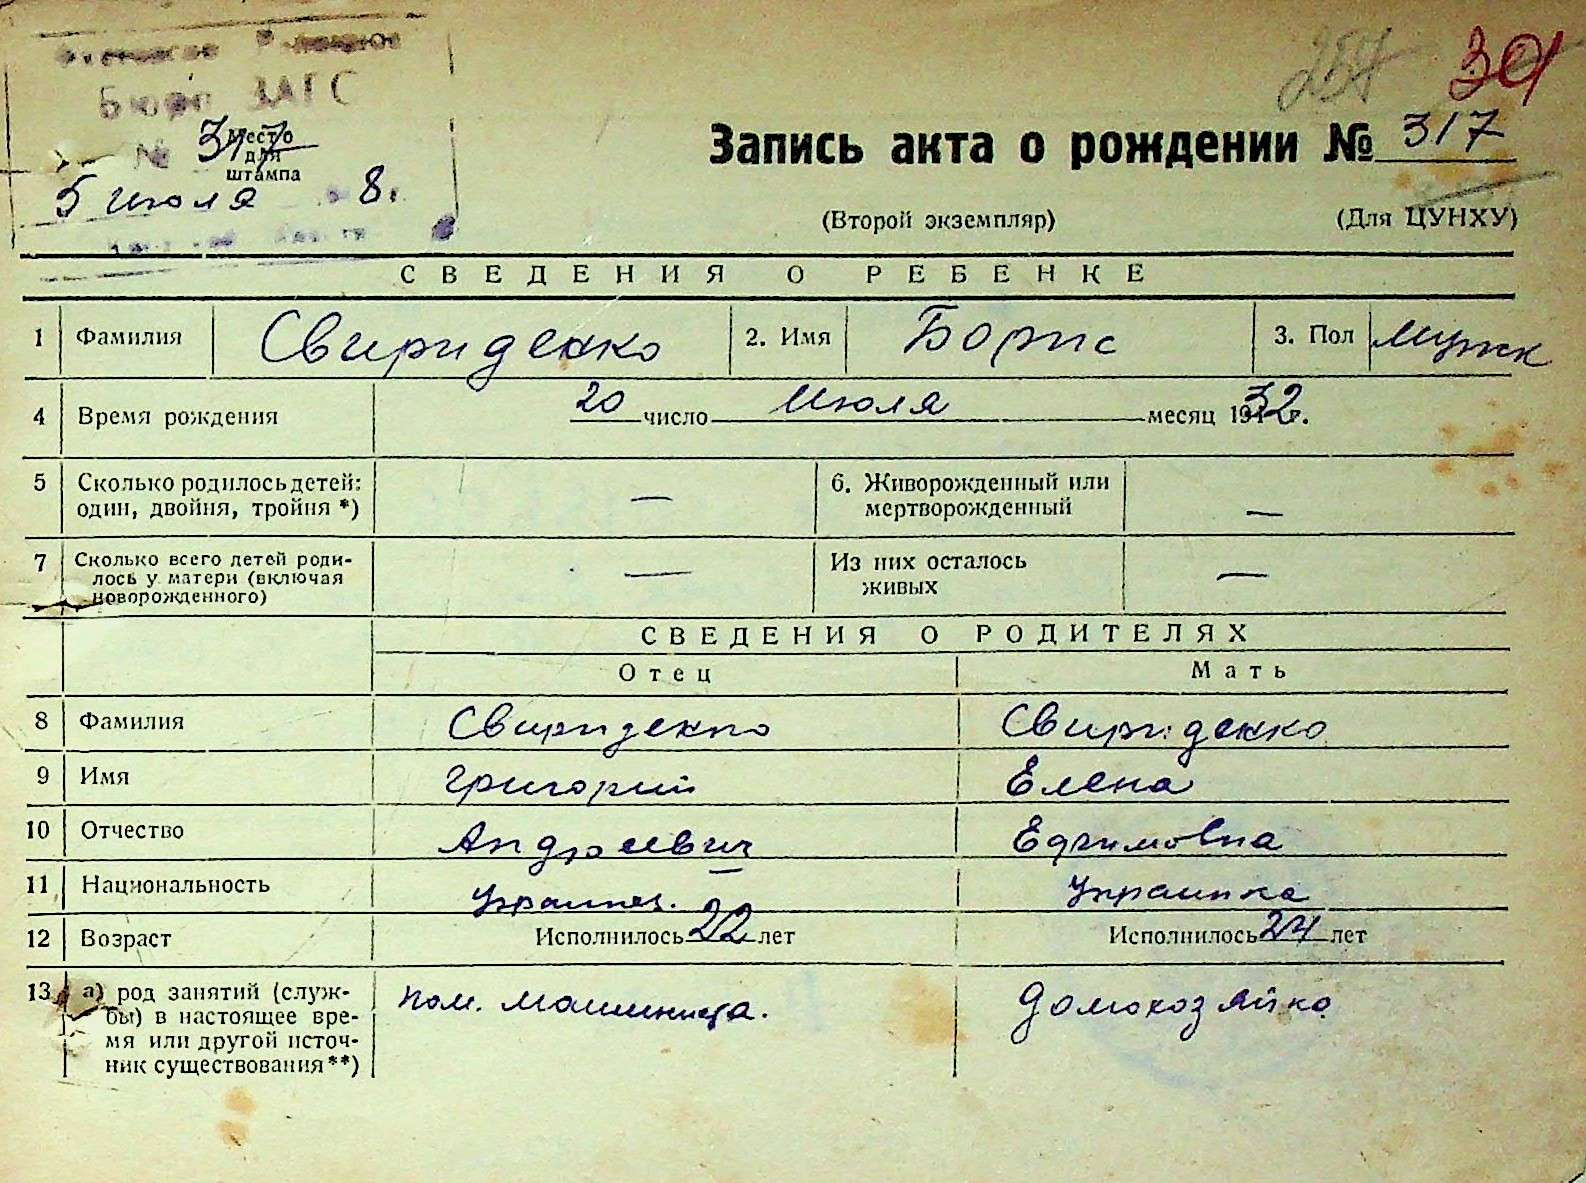 Бюро ЗАГС
№ 317
Место
для
штампа
5 июля 8.
254 301
Запись акта о рождении № 317
(Второй экземпляр) (Для ЦУНХУ)
СВЕДЕНИЯ О РЕБЕНКЕ
1 Фамилия Свириденко 2. Имя Борис 3. Пол мужск
4 Время рождения 20 число Июля месяц 1932 г.
5 Сколько родилось детей: — 6. Живорожденный или —
один, двойня, тройня *) мертворожденный
7 Сколько всего детей роди- — Из них осталось —
лось у матери (включая живых
новорожденного)
СВЕДЕНИЯ О РОДИТЕЛЯХ
Отец Мать
8 Фамилия Свириденко Свириденко
9 Имя Григорий Елена
10 Отчество Андреевич Ефимовна
11 Национальность Украинец. Украинка
12 Возраст Исполнилось 22 лет Исполнилось 24 лет
13 а) род занятий (служ- пом. машиниста. Домохозяйка
бы) в настоящее вре-
мя или другой источ-
ник существования**)